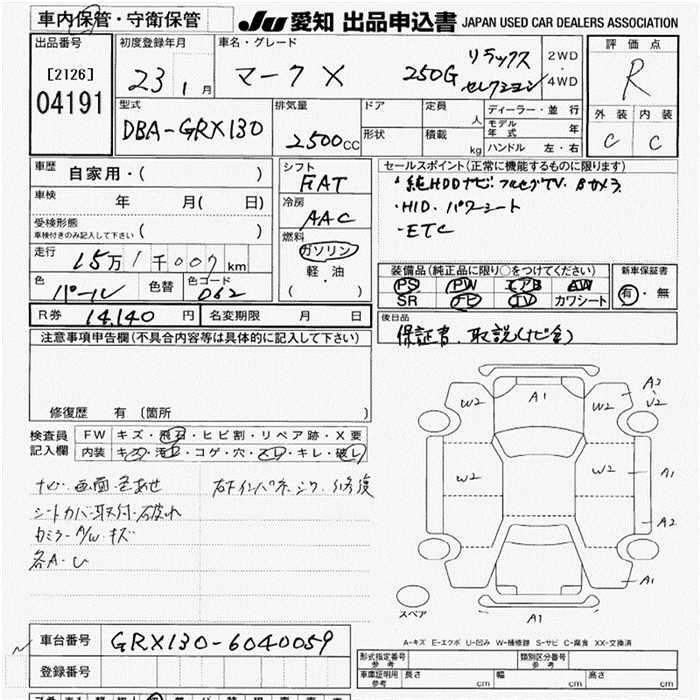 車内保管・守衛保管
JU 愛知 出品申込書 JAPAN USED CAR DEALERS ASSOCIATION
出品番号
[2126]
04191
初度登録年月
23 1月
車名・グレード
マークX 250G リラックスセレクション
2WD
・
4WD
評価点
R
外装 内装
C C
型式
DBA-GRX130
排気量
2500cc
ドア
形状
定員
人
積載
kg
ディーラー・並行
モデル年式 年
ハンドル 左・右
車歴 自家用・( )
車検 年 月( 日)
受検形態
車検付きのみ記入して下さい ( )
走行 15万1千007km
色 パール 色替 色コード 062
シフト
FAT
冷房
AAC
燃料
ガソリン
・
軽・油
( )
セールスポイント(正常に機能するものに限ります)
・純HDDナビ フルセグTV Bカメラ
・HID・パワーシート
・ETC
装備品(純正品に限り〇をつけてください)
PS PW エアB AW
SR ナビ TV カワシート
新車保証書
有・無
R券 14,140円 名変期限 月 日
後日品
保証書、取説(ナビ含)
注意事項申告欄(不具合内容等は具体的に記入して下さい)
修復歴 有〔箇所 〕
検査員記入欄
FW キズ・飛石・ヒビ割・リペア跡・X要
内装 キズ・汚れ・コゲ・穴・スレ・キレ・破レ
ナビ画面色あせ
シートカバー取付・破れ
カミラーA/Wキズ
各A・U
右インパネ シワ 修復
W2 A1 W2 A2
U2
W2 W2 A1
A2
A1
スペア
A1
A-キズ E-エクボ U-凹み W-補修跡 S-サビ C-腐食 XX-交換済
車台番号 GRX130-6040059
登録番号
形式指定番号参考
類別区分番号参考
車庫証明用参考 長さ cm 幅 cm 高さ cm